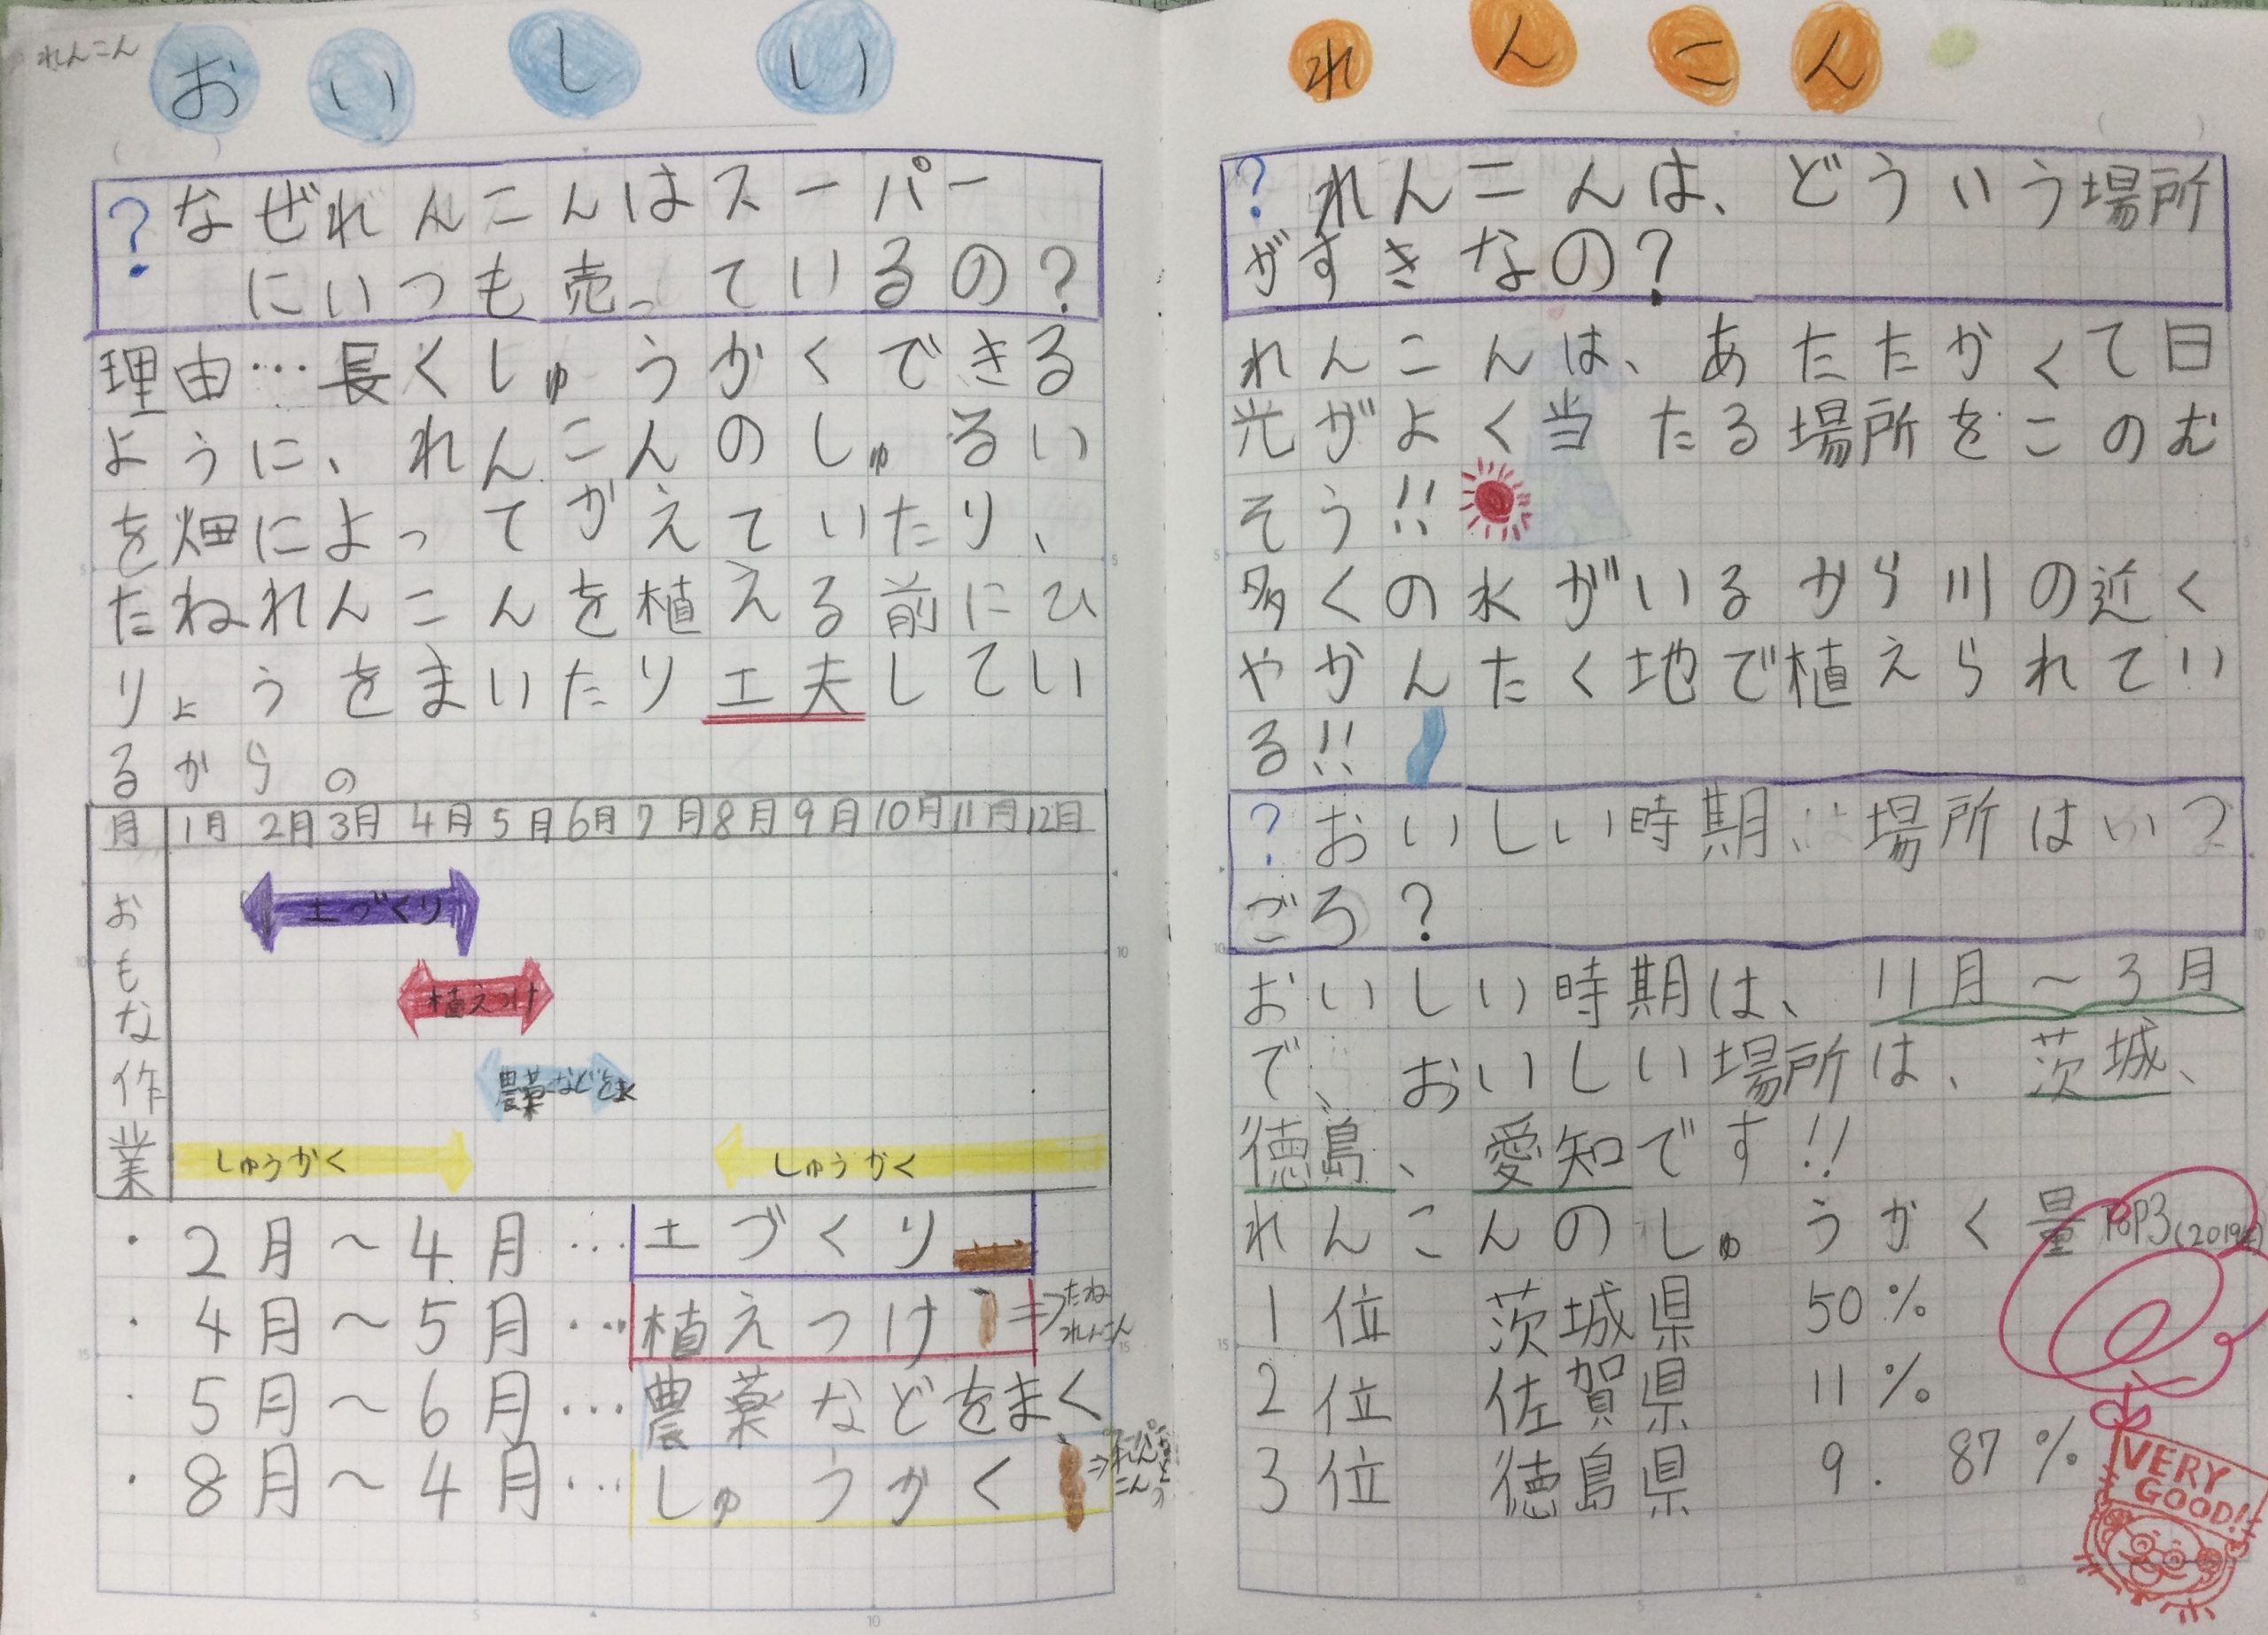 れんこん
おいしい
?なぜれんこんはスーパー
にいつも売っているの?
理由…長くしゅうかくできる
ように、れんこんのしゅるい
を畑によってかえていたり、
たねれんこんを植える前にひ
りょうをまいたり工夫してい
るから。
月 1月 2月 3月 4月 5月 6月 7月 8月 9月 10月 11月 12月
おもな作業
土づくり
植えつけ
農薬などをまく
しゅうかく しゅうかく
・2月〜4月…土づくり
・4月〜5月…植えつけ ⇒たね
れんこん
・5月〜6月…農薬などをまく
・8月〜4月…しゅうかく ⇒れん
こん
れんこん
?れんこんは、どういう場所
がすきなの?
れんこんは、あたたかくて日
光がよく当たる場所をこのむ
そう!!
多くの水がいるから川の近く
やかんたく地で植えられてい
る!!
?おいしい時期、場所はいつ
ごろ?
おいしい時期は、11月〜3月
で、おいしい場所は、茨城、
徳島、愛知です!!
れんこんのしゅうかく量TOP3(2019年)
1位 茨城県 50%
2位 佐賀県 11%
3位 徳島県 9.87%
VERY
GOOD!